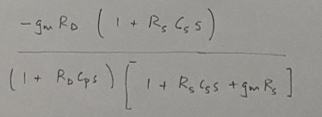 -gₘ R_D ( 1 + R_s C_s s )
(1 + R_D C_p s ) [ 1 + R_s C_s s + gₘ R_s ]